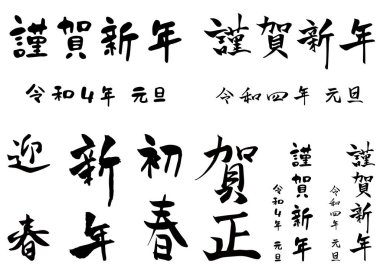 謹賀新年
令和4年 元旦
謹賀新年
令和四年 元旦
迎春
新年
初春
賀正
謹賀新年
令和4年 元旦
謹賀新年
令和四年 元旦